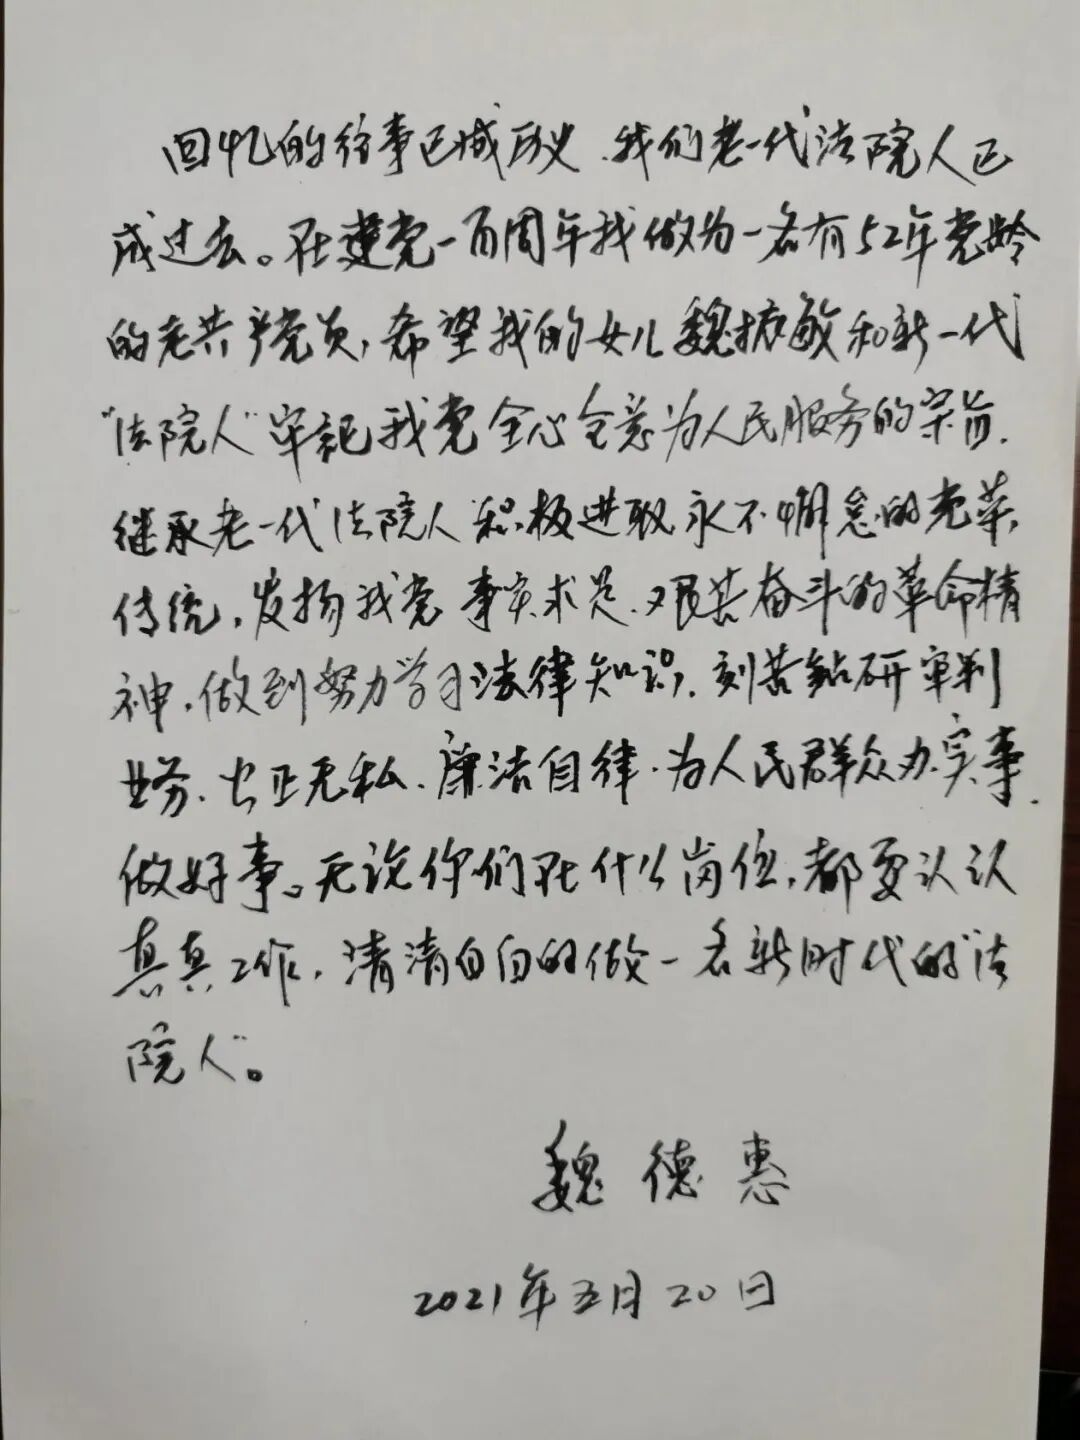 回忆的往事已成历史、我们老一代法院人已
成过去。在建党一百周年我做为一名有52年党龄
的老共产党员，希望我的女儿魏振敏和新一代
“法院人”牢记我党全心全意为人民服务的宗旨、
继承老一代法院人积极进取永不懈怠的光荣
传统，发扬我党事实求是、艰苦奋斗的革命精
神，做到努力学习法律知识，刻苦钻研审判
业务、公正无私、廉洁自律、为人民群众办实事、
做好事。无论你们在什么岗位，都要认认
真真工作，清清白白的做一名新时代的“法
院人”。
魏德惠
2021年五月20日